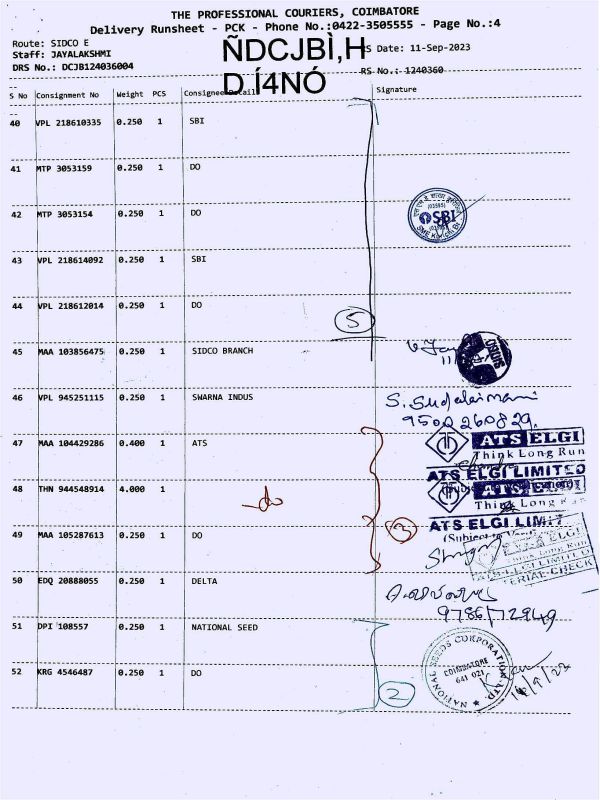 THE PROFESSIONAL COURIERS, COIMBATORE
Delivery Runsheet - PCK - Phone No.:0422-3505555 - Page No.:4
Route: SIDCO E
Staff: JAYALAKSHMI
DRS No.: DCJB124036004
ÑDCJBÌ,H
D Í4NÓ
RS Date: 11-Sep-2023
RS No.: 1240360
S No Consignment No Weight PCS Consignee Detail Signature
40 VPL 218610335 0.250 1 SBI
41 MTP 3053159 0.250 1 DO
42 MTP 3053154 0.250 1 DO
SBI
43 VPL 218614092 0.250 1 SBI
44 VPL 218612014 0.250 1 DO
5
45 MAA 103856475 0.250 1 SIDCO BRANCH
46 VPL 945251115 0.250 1 SWARNA INDUS
S. Sudalaimani
9500260829.
47 MAA 104429286 0.400 1 ATS
ATS ELGI
Think Long Run
ATS ELGI LIMITED
48 THN 944548914 4.000 1 do
ATS ELGI
Think Long Run
ATS ELGI LIMIT
3
49 MAA 105287613 0.250 1 DO
50 EDQ 20888055 0.250 1 DELTA
9786172949
51 DPI 108557 0.250 1 NATIONAL SEED
52 KRG 4546487 0.250 1 DO
2
NATIONAL SEEDS CORPORATION LTD.
COIMBATORE
641 021